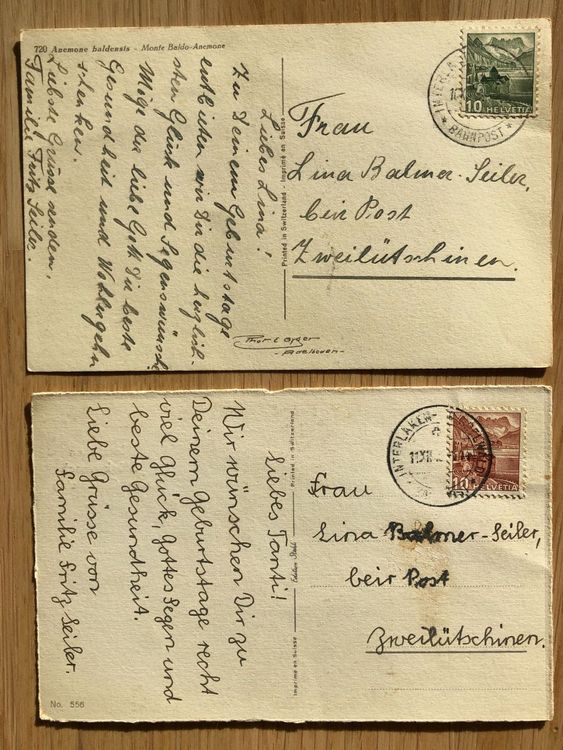 720 Anemone baldensis - Monte Baldo-Anemone
Liebes Lina!
Zu Deinem Geburtstage
entbieten wir Dir die herzlich-
sten Glück und Segenswünsche
Möge der liebe Gott Dir beste
Gesundheit und Wohlergehn
schenken.
Liebste Grüsse senden,
Familie Fritz Seiler.
Printed in Switzerland - Imprimé en Suisse
-Adelboden-
INTERLA
BAHNPOST
10
HELVETIA
Frau
Lina Balmer-Seiler,
beir Post
Zweilütschinen.
Liebes Tanti!
Wir wünschen Dir zu
Deinem Geburtstage recht
viel Glück, Gottes Segen und
beste Gesundheit.
Liebe Grüsse von
Familie Fritz Seiler.
No. 556
Imprimé en Suisse
Printed in Switzerland
INTERLAKEN-
10
HELVETIA
Frau
Lina Balmer-Seiler,
beir Post
Zweilütschinen.